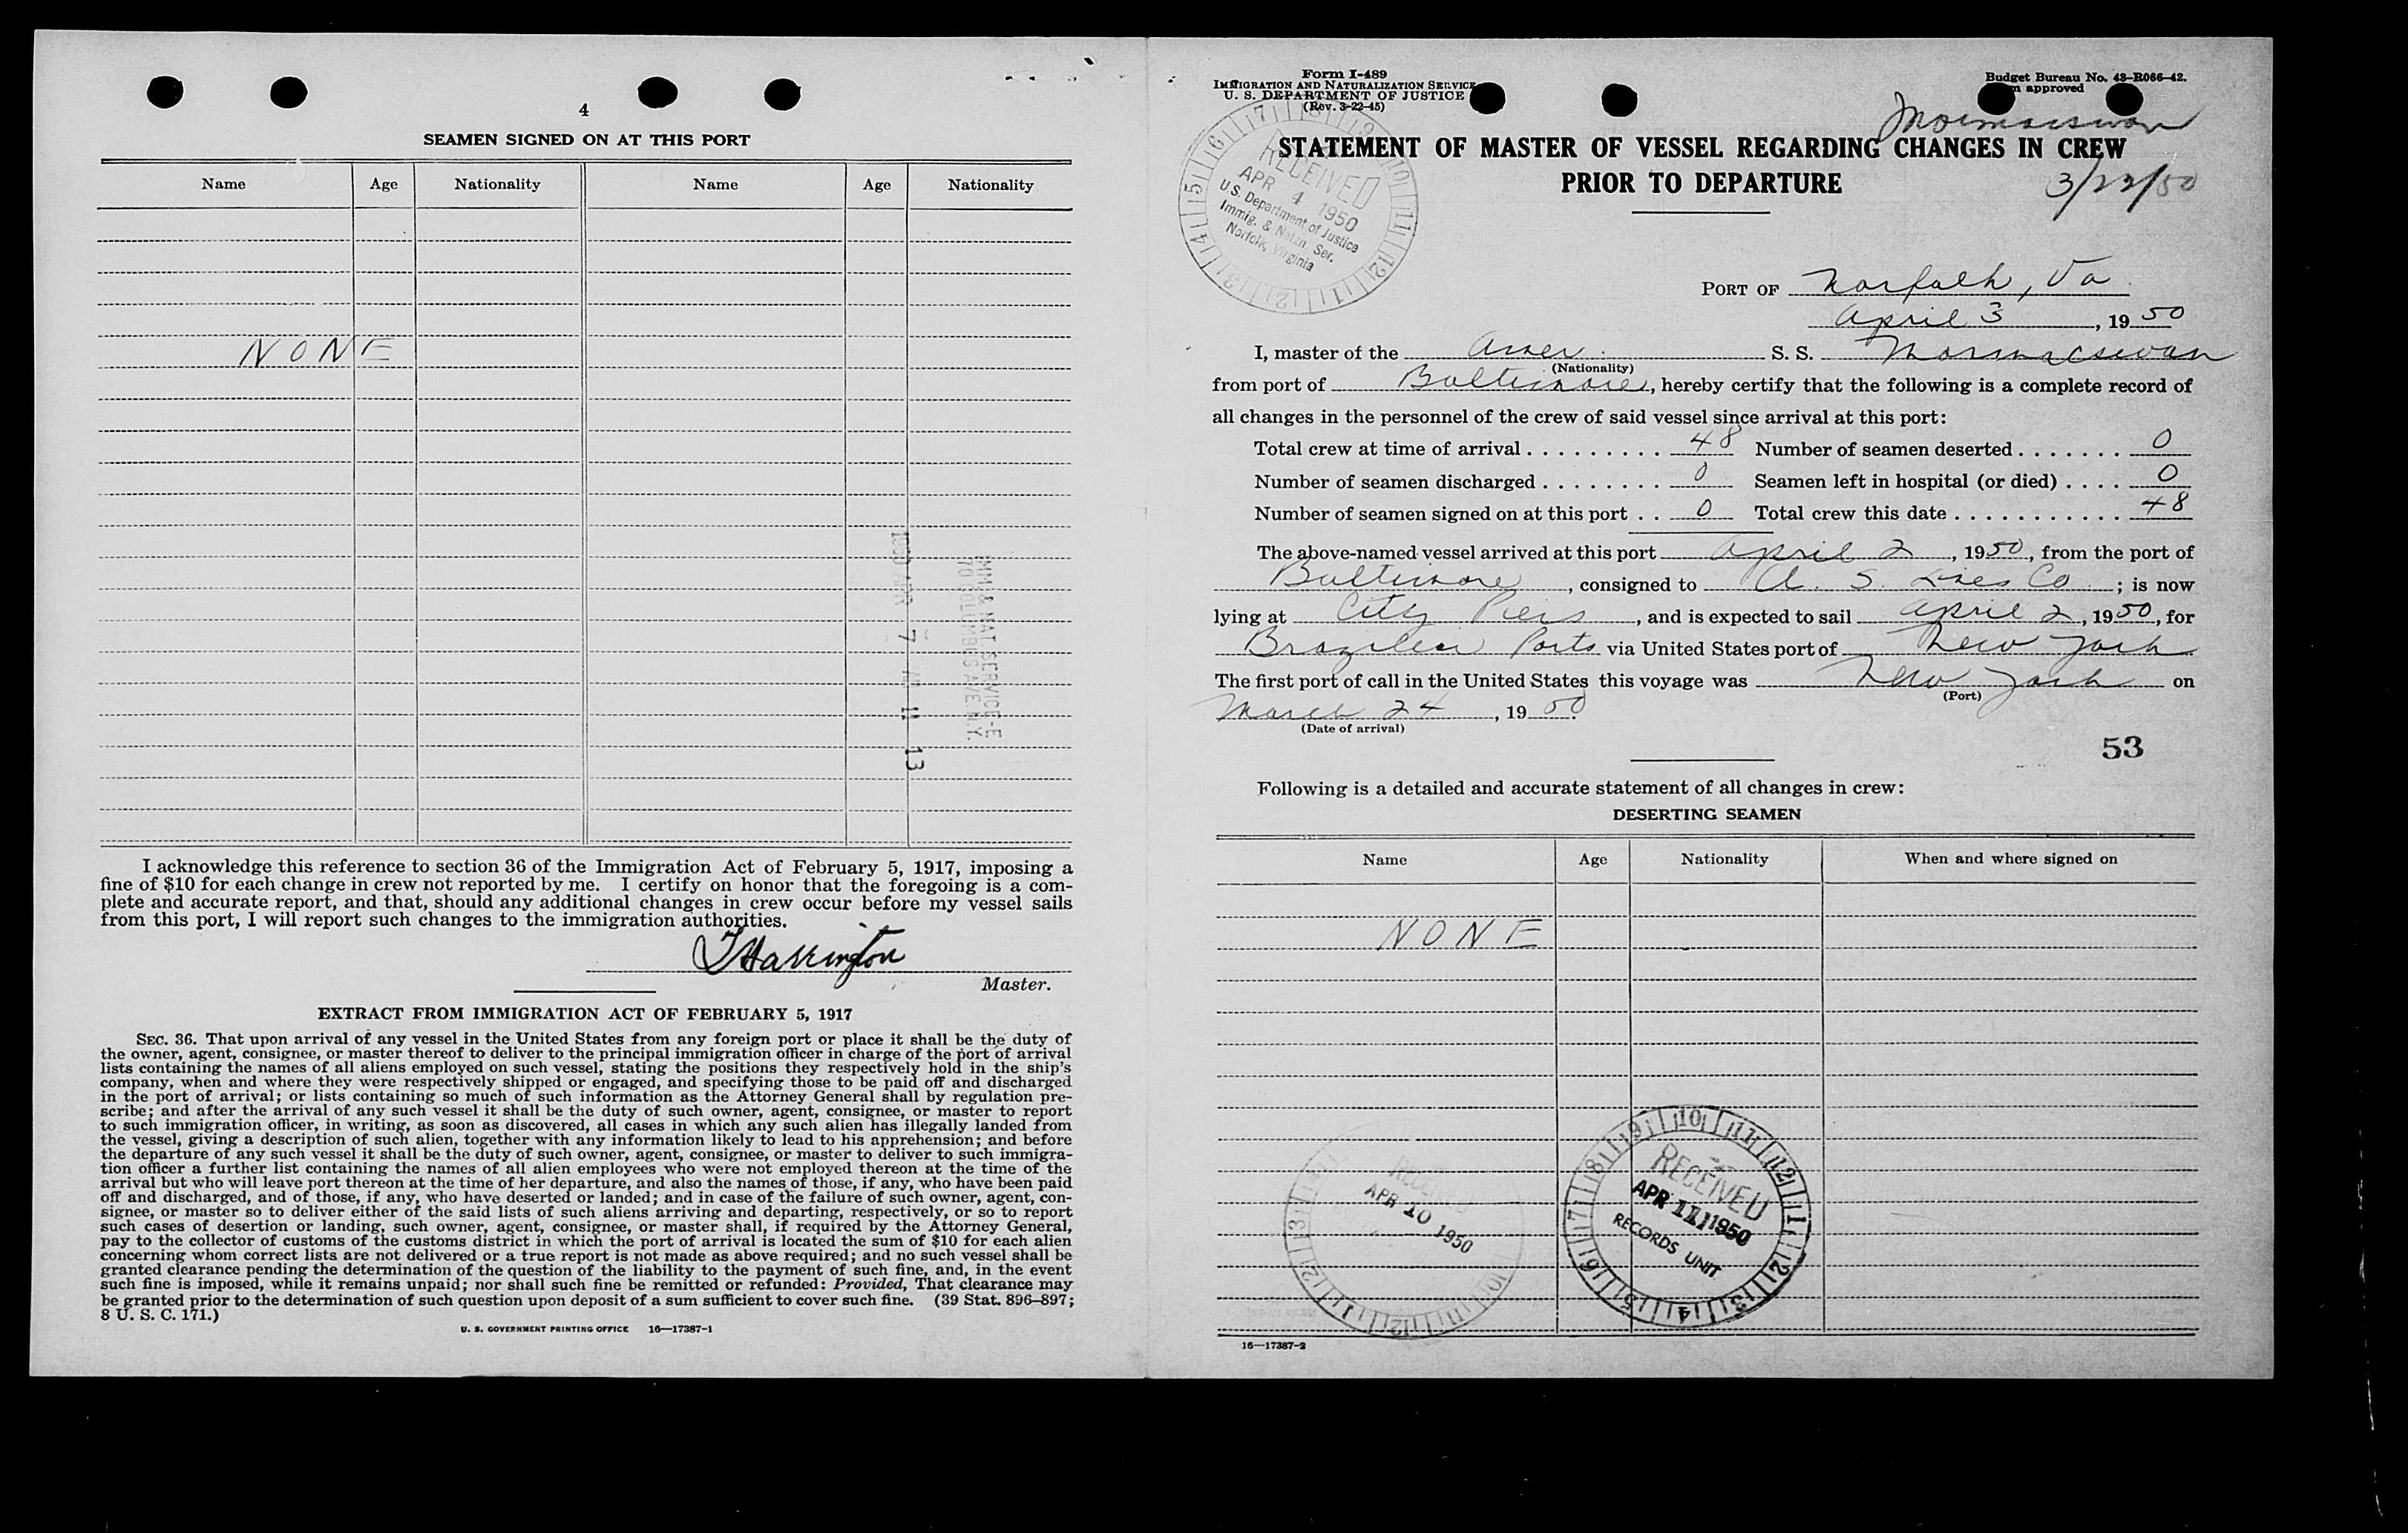 4
SEAMEN SIGNED ON AT THIS PORT
Name Age Nationality Name Age Nationality
NONE
IMM & NAT. SERVICE-E
70 COLUMBUS AVE. N.Y.
1950 APR 7 AM 11 13
I acknowledge this reference to section 36 of the Immigration Act of February 5, 1917, imposing a
fine of $10 for each change in crew not reported by me. I certify on honor that the foregoing is a com-
plete and accurate report, and that, should any additional changes in crew occur before my vessel sails
from this port, I will report such changes to the immigration authorities.
Harrington
Master.
EXTRACT FROM IMMIGRATION ACT OF FEBRUARY 5, 1917
SEC. 36. That upon arrival of any vessel in the United States from any foreign port or place it shall be the duty of
the owner, agent, consignee, or master thereof to deliver to the principal immigration officer in charge of the port of arrival
lists containing the names of all aliens employed on such vessel, stating the positions they respectively hold in the ship's
company, when and where they were respectively shipped or engaged, and specifying those to be paid off and discharged
in the port of arrival; or lists containing so much of such information as the Attorney General shall by regulation pre-
scribe; and after the arrival of any such vessel it shall be the duty of such owner, agent, consignee, or master to report
to such immigration officer, in writing, as soon as discovered, all cases in which any such alien has illegally landed from
the vessel, giving a description of such alien, together with any information likely to lead to his apprehension; and before
the departure of any such vessel it shall be the duty of such owner, agent, consignee, or master to deliver to such immigra-
tion officer a further list containing the names of all alien employees who were not employed thereon at the time of the
arrival but who will leave port thereon at the time of her departure, and also the names of those, if any, who have been paid
off and discharged, and of those, if any, who have deserted or landed; and in case of the failure of such owner, agent, con-
signee, or master so to deliver either of the said lists of such aliens arriving and departing, respectively, or so to report
such cases of desertion or landing, such owner, agent, consignee, or master shall, if required by the Attorney General,
pay to the collector of customs of the customs district in which the port of arrival is located the sum of $10 for each alien
concerning whom correct lists are not delivered or a true report is not made as above required; and no such vessel shall be
granted clearance pending the determination of the question of the liability to the payment of such fine, and, in the event
such fine is imposed, while it remains unpaid; nor shall such fine be remitted or refunded: Provided, That clearance may
be granted prior to the determination of such question upon deposit of a sum sufficient to cover such fine. (39 Stat. 896–897;
8 U. S. C. 171.)
U. S. GOVERNMENT PRINTING OFFICE 16—17387-1
Form I-489
IMMIGRATION AND NATURALIZATION SERVICE
U. S. DEPARTMENT OF JUSTICE
(Rev. 3-22-45)
Budget Bureau No. 43–R066–42.
approved
Mormacswan
STATEMENT OF MASTER OF VESSEL REGARDING CHANGES IN CREW
PRIOR TO DEPARTURE
3/22/50
RECEIVED
APR 4 1950
U.S. Department of Justice
Immig. & Natzn. Ser.
Norfolk, Virginia
PORT OF Norfolk, Va
April 3, 1950
I, master of the Amer. S. S. Mormacswan
(Nationality)
from port of Baltimore, hereby certify that the following is a complete record of
all changes in the personnel of the crew of said vessel since arrival at this port:
Total crew at time of arrival 48 Number of seamen deserted 0
Number of seamen discharged 0 Seamen left in hospital (or died) 0
Number of seamen signed on at this port 0 Total crew this date 48
The above-named vessel arrived at this port April 2, 1950, from the port of
Baltimore, consigned to A. S. Lines Co; is now
lying at City Piers, and is expected to sail April 2, 1950, for
Brazilian Ports via United States port of New York
The first port of call in the United States this voyage was New York on
(Port)
March 24, 1950.
(Date of arrival)
53
Following is a detailed and accurate statement of all changes in crew:
DESERTING SEAMEN
Name Age Nationality When and where signed on
NONE
APR 10 1950
RECEIVED
APR 11 1950
RECORDS UNIT
16—17387-2